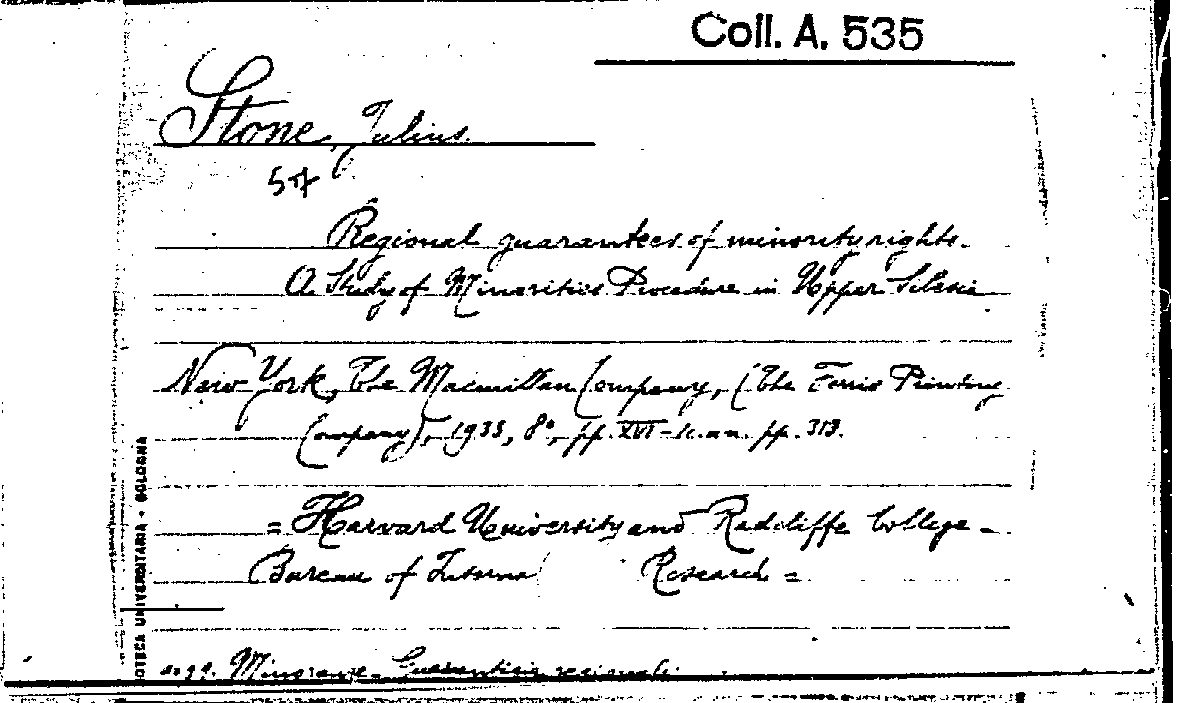 Coll. A. 535
Stone, Julius.
Regional guarantees of minority rights.
A Study of Minorities Procedure in Upper Silesia
New York, The Macmillan Company, (The Ferris Printing
Company), 1933, 8°, pp. XVI - 1 c. nn. pp. 313.
= Harvard University and Radcliffe College -
Bureau of Interna Research =
OTECA UNIVERSITARIA • BOLOGNA
sogg. Minoranze - Guarentigie regionali.